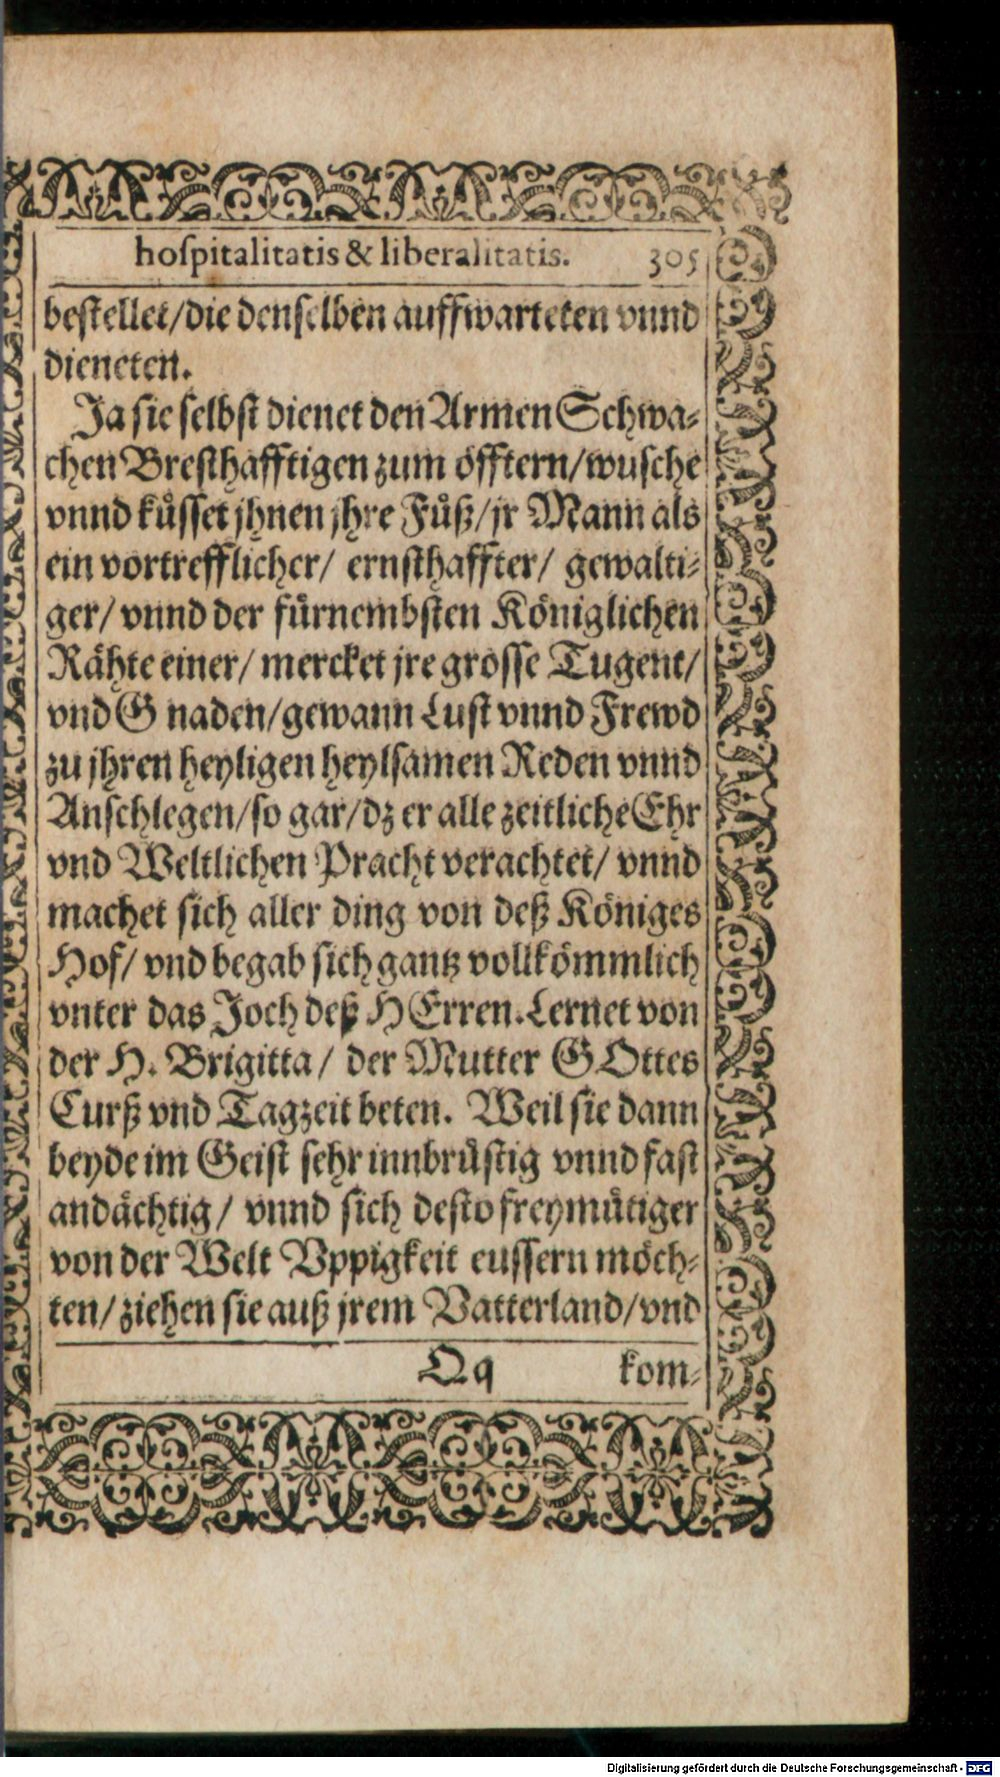 hoſpitalitatis & liberalitatis. 305
beſtellet/die denſelben auffwarteten vnnd
dieneten.
Ja ſie ſelbſt dienet den Armen Schwa-
chen Breſthafftigen zum öfftern/wuſche
vnnd kuͤſſet jhnen jhre Fuͤß/jr Mann als
ein vortrefflicher/ ernſthaffter/ gewalti-
ger/ vnnd der fuͤrnembſten Königlichen
Rähte einer/ mercket jre groſſe Tugent/
vnd G naden/gewann Luſt vnnd Frewd
zu jhren heyligen heylſamen Reden vnnd
Anſchlegen/ſo gar/dz er alle zeitliche Ehr
vnd Weltlichen Pracht verachtet/ vnnd
machet ſich aller ding von deß Königes
Hof/ vnd begab ſich gantz vollkömmlich
vnter das Joch deß HErren. Lernet von
der H. Brigitta/ der Mutter GOttes
Curß vnd Tagzeit beten. Weil ſie dann
beyde im Geiſt ſehr innbruͤſtig vnnd faſt
andächtig/ vnnd ſich deſto freymuͤtiger
von der Welt Vppigkeit euſſern möch-
ten/ziehen ſie auß jrem Vatterland/vnd
Qq kom-
Digitalisierung gefördert durch die Deutsche Forschungsgemeinschaft - DFG